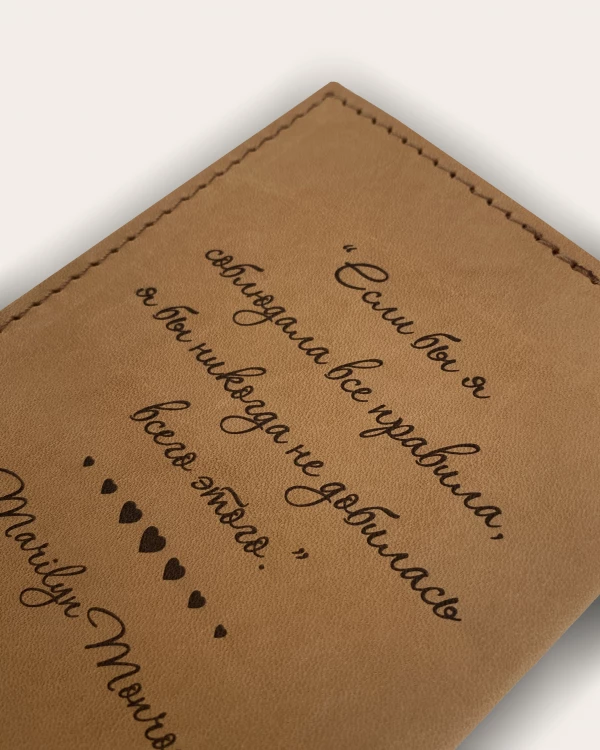 “Если бы я
соблюдала все правила,
я бы никогда не добилась
всего этого.”
Marilyn Monro